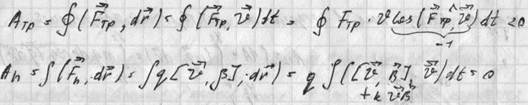 A_Tp = ∮(F⃗_Tp, dr⃗) = ∮(F⃗_Tp, v⃗)dt = ∮ F_Tp · v cos(F⃗_Tp^v⃗) dt ≠ 0
-1
A_л = ∫(F⃗_л, dr⃗) = ∫q[v⃗, B⃗], dr⃗) = q ∫([v⃗, B⃗], v⃗)dt = 0